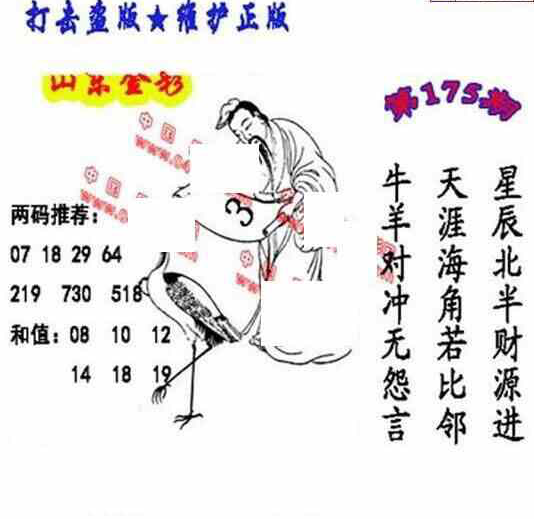 打击盗版★维护正版
山东金彩
第175期
中国
www.04
中国
www.0
3
两码推荐：
07 18 29 64
219 730 518
和值：08 10 12
14 18 19
星辰北半财源进
天涯海角若比邻
牛羊对冲无怨言